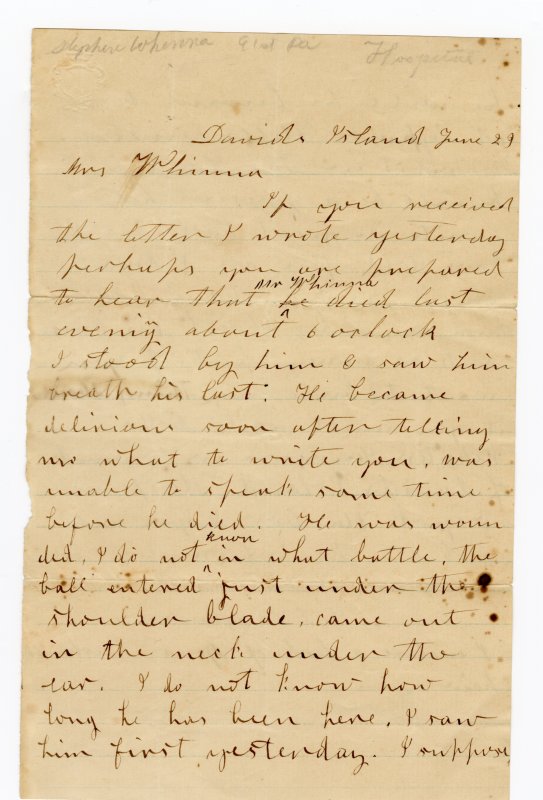 Stephen Whinna 91st Pa Hospital
Davids Island June 29
Mrs Whinna
If you received
the letter I wrote yesterday
perhaps you are prepared
Mr Whinna
to hear that he died last
evenig about 6 oclock
I stood by him & saw him
breath his last. He became
delirious soon after telling
me what to write you, was
unable to speak some time
before he died. He was woun
know
ded, I do not in what battle, the
ball entered just under the
shoulder blade, came out
in the neck under the
ear. I do not know how
long he has been here, I saw
him first yesterday. I suppose,